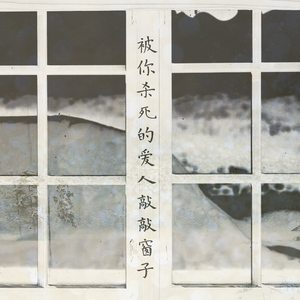 被你杀死的爱人敲敲窗子